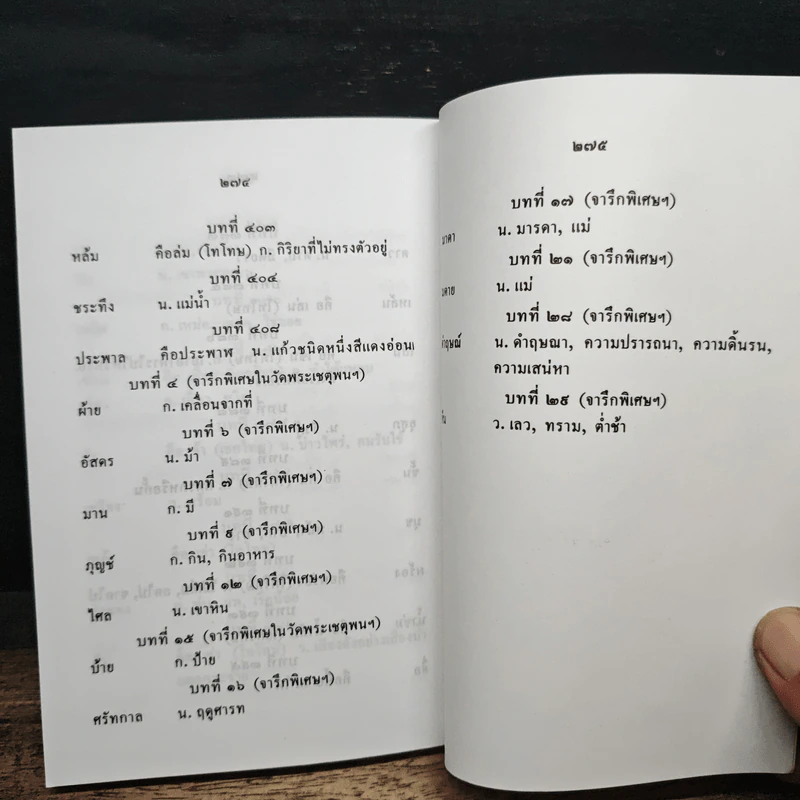 ๒๗๔
บทที่ ๔๐๓
หล้ม คือล่ม (โทโทษ) ก. กิริยาที่ไม่ทรงตัวอยู่
บทที่ ๔๐๔
ชระทึง น. แม่น้ำ
บทที่ ๔๐๘
ประพาล คือประพาฬ น. แก้วชนิดหนึ่งสีแดงอ่อนแ
บทที่ ๔ (จารึกพิเศษในวัดพระเชตุพนฯ)
ผ้าย ก. เคลื่อนจากที่
บทที่ ๖ (จารึกพิเศษฯ)
อัสดร น. ม้า
บทที่ ๗ (จารึกพิเศษฯ)
มาน ก. มี
บทที่ ๙ (จารึกพิเศษฯ)
ภุญช์ ก. กิน, กินอาหาร
บทที่ ๑๒ (จารึกพิเศษฯ)
ไศล น. เขาหิน
บทที่ ๑๕ (จารึกพิเศษในวัดพระเชตุพนฯ)
บ้าย ก. ป้าย
บทที่ ๑๖ (จารึกพิเศษฯ)
ศรัทกาล น. ฤดูศารท
๒๗๕
บทที่ ๑๗ (จารึกพิเศษฯ)
มาดา น. มารดา, แม่
บทที่ ๒๑ (จารึกพิเศษฯ)
น. แม่
บทที่ ๒๘ (จารึกพิเศษฯ)
น. ดำฤษณา, ความปรารถนา, ความดิ้นรน,
ความเสน่หา
บทที่ ๒๙ (จารึกพิเศษฯ)
ว. เลว, ทราม, ต่ำช้า